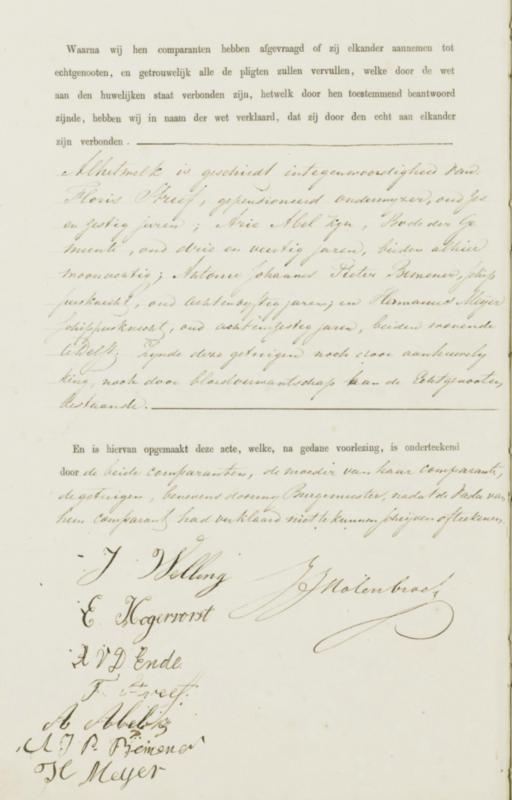 Waarna wij hen comparanten hebben afgevraagd of zij elkander aannemen tot
echtgenooten, en getrouwelijk alle de pligten zullen vervullen, welke door de wet
aan den huwelijken staat verbonden zijn, hetwelk door hen toestemmend beantwoord
zijnde, hebben wij in naam der wet verklaard, dat zij door den echt aan elkander
zijn verbonden.
Al hetwelk is geschiedt in tegenwoordigheid van
Floris Streef, gepensioneerd ondermyzer, oud zes
en zestig jaren; Arie Abel zyn, Bode der Ge
meente, oud drie en veertig jaren, beiden alhier
woonachtig; Antonie Johannes Pieter Bemener, schip
persknecht, oud acht en vyftig jaren; en Hermanus Meijer
schippersknecht, oud acht en zestig jaren, beiden wonende
te Delft. Zynde deze getuigen noch door aanhuwely
king, noch door bloedverwantschap aan de Echtgenooten
bestaande.
En is hiervan opgemaakt deze acte, welke, na gedane voorlezing, is onderteekend
door de beide comparanten, de moeder van haar comparante,
de getuigen, benevens door my Burgemeester, nadat de Vader van
hem comparant had verklaard niet te kunnen schrijven of teekenen.
J Welling
E Hogervorst
A V D Ende
F Streef
A Abelzn
A J P Bemener
H Meyer